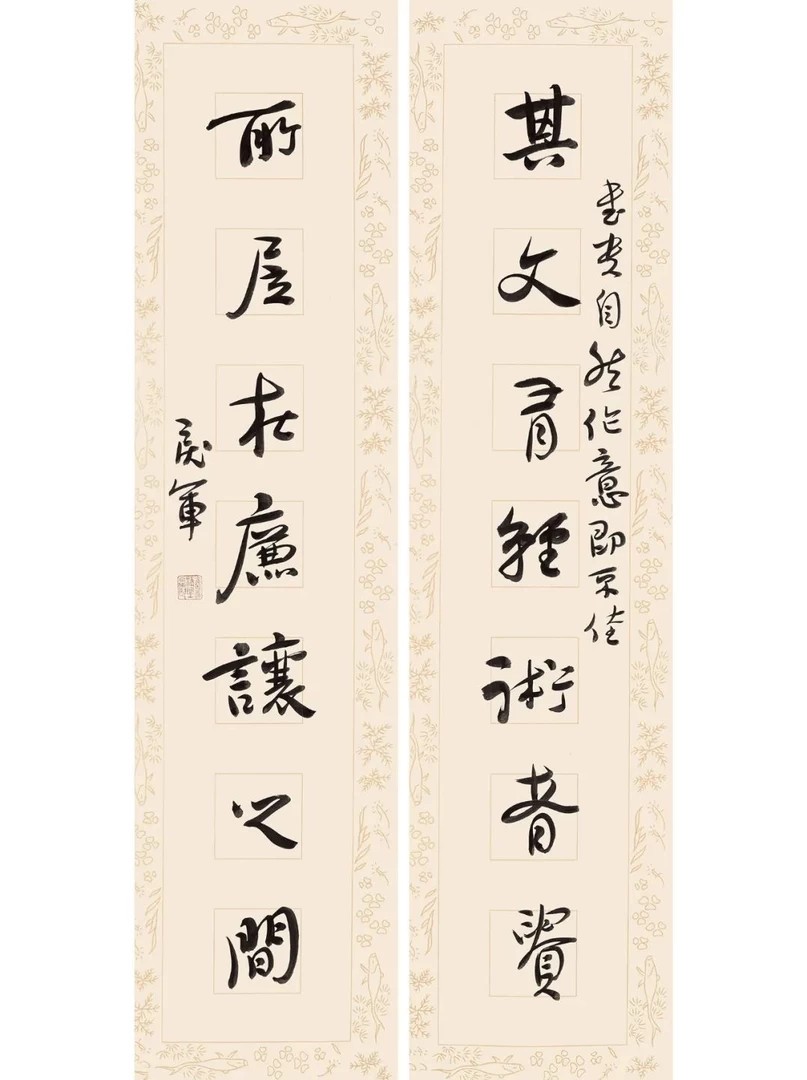 書貴自然作意即不佳
其文有經術者貴
所居在廉讓之間
軍